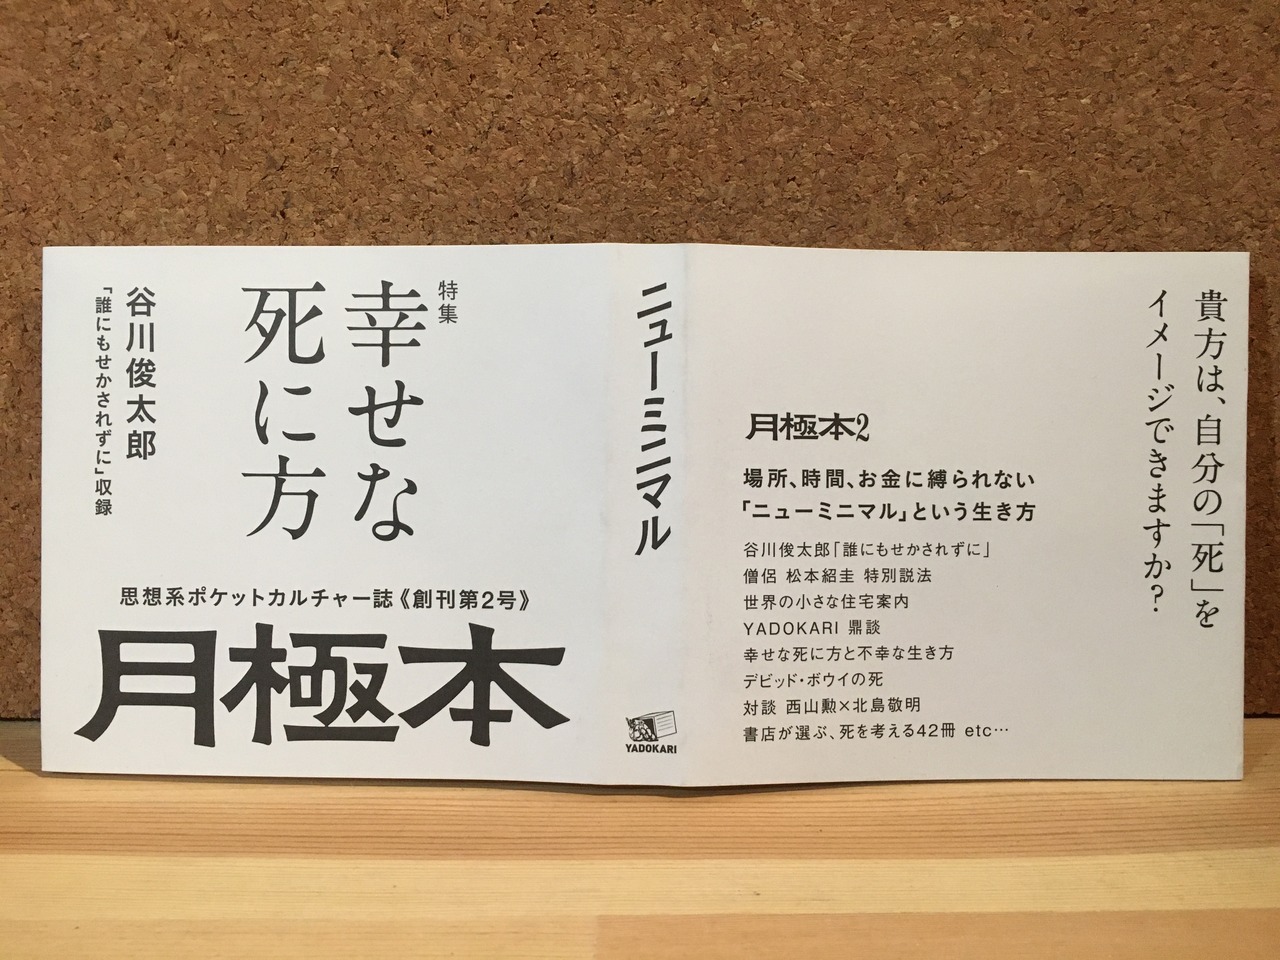 特集
幸せな
死に方
谷川俊太郎
「誰にもせかされずに」収録
思想系ポケットカルチャー誌《創刊第2号》
月極本
ニューミニマル
YADOKARI
貴方は、自分の「死」を
イメージできますか？
月極本2
場所、時間、お金に縛られない
「ニューミニマル」という生き方
谷川俊太郎「誰にもせかされずに」
僧侶 松本紹圭 特別説法
世界の小さな住宅案内
YADOKARI 鼎談
幸せな死に方と不幸な生き方
デビッド・ボウイの死
対談 西山勲×北島敬明
書店が選ぶ、死を考える42冊 etc…